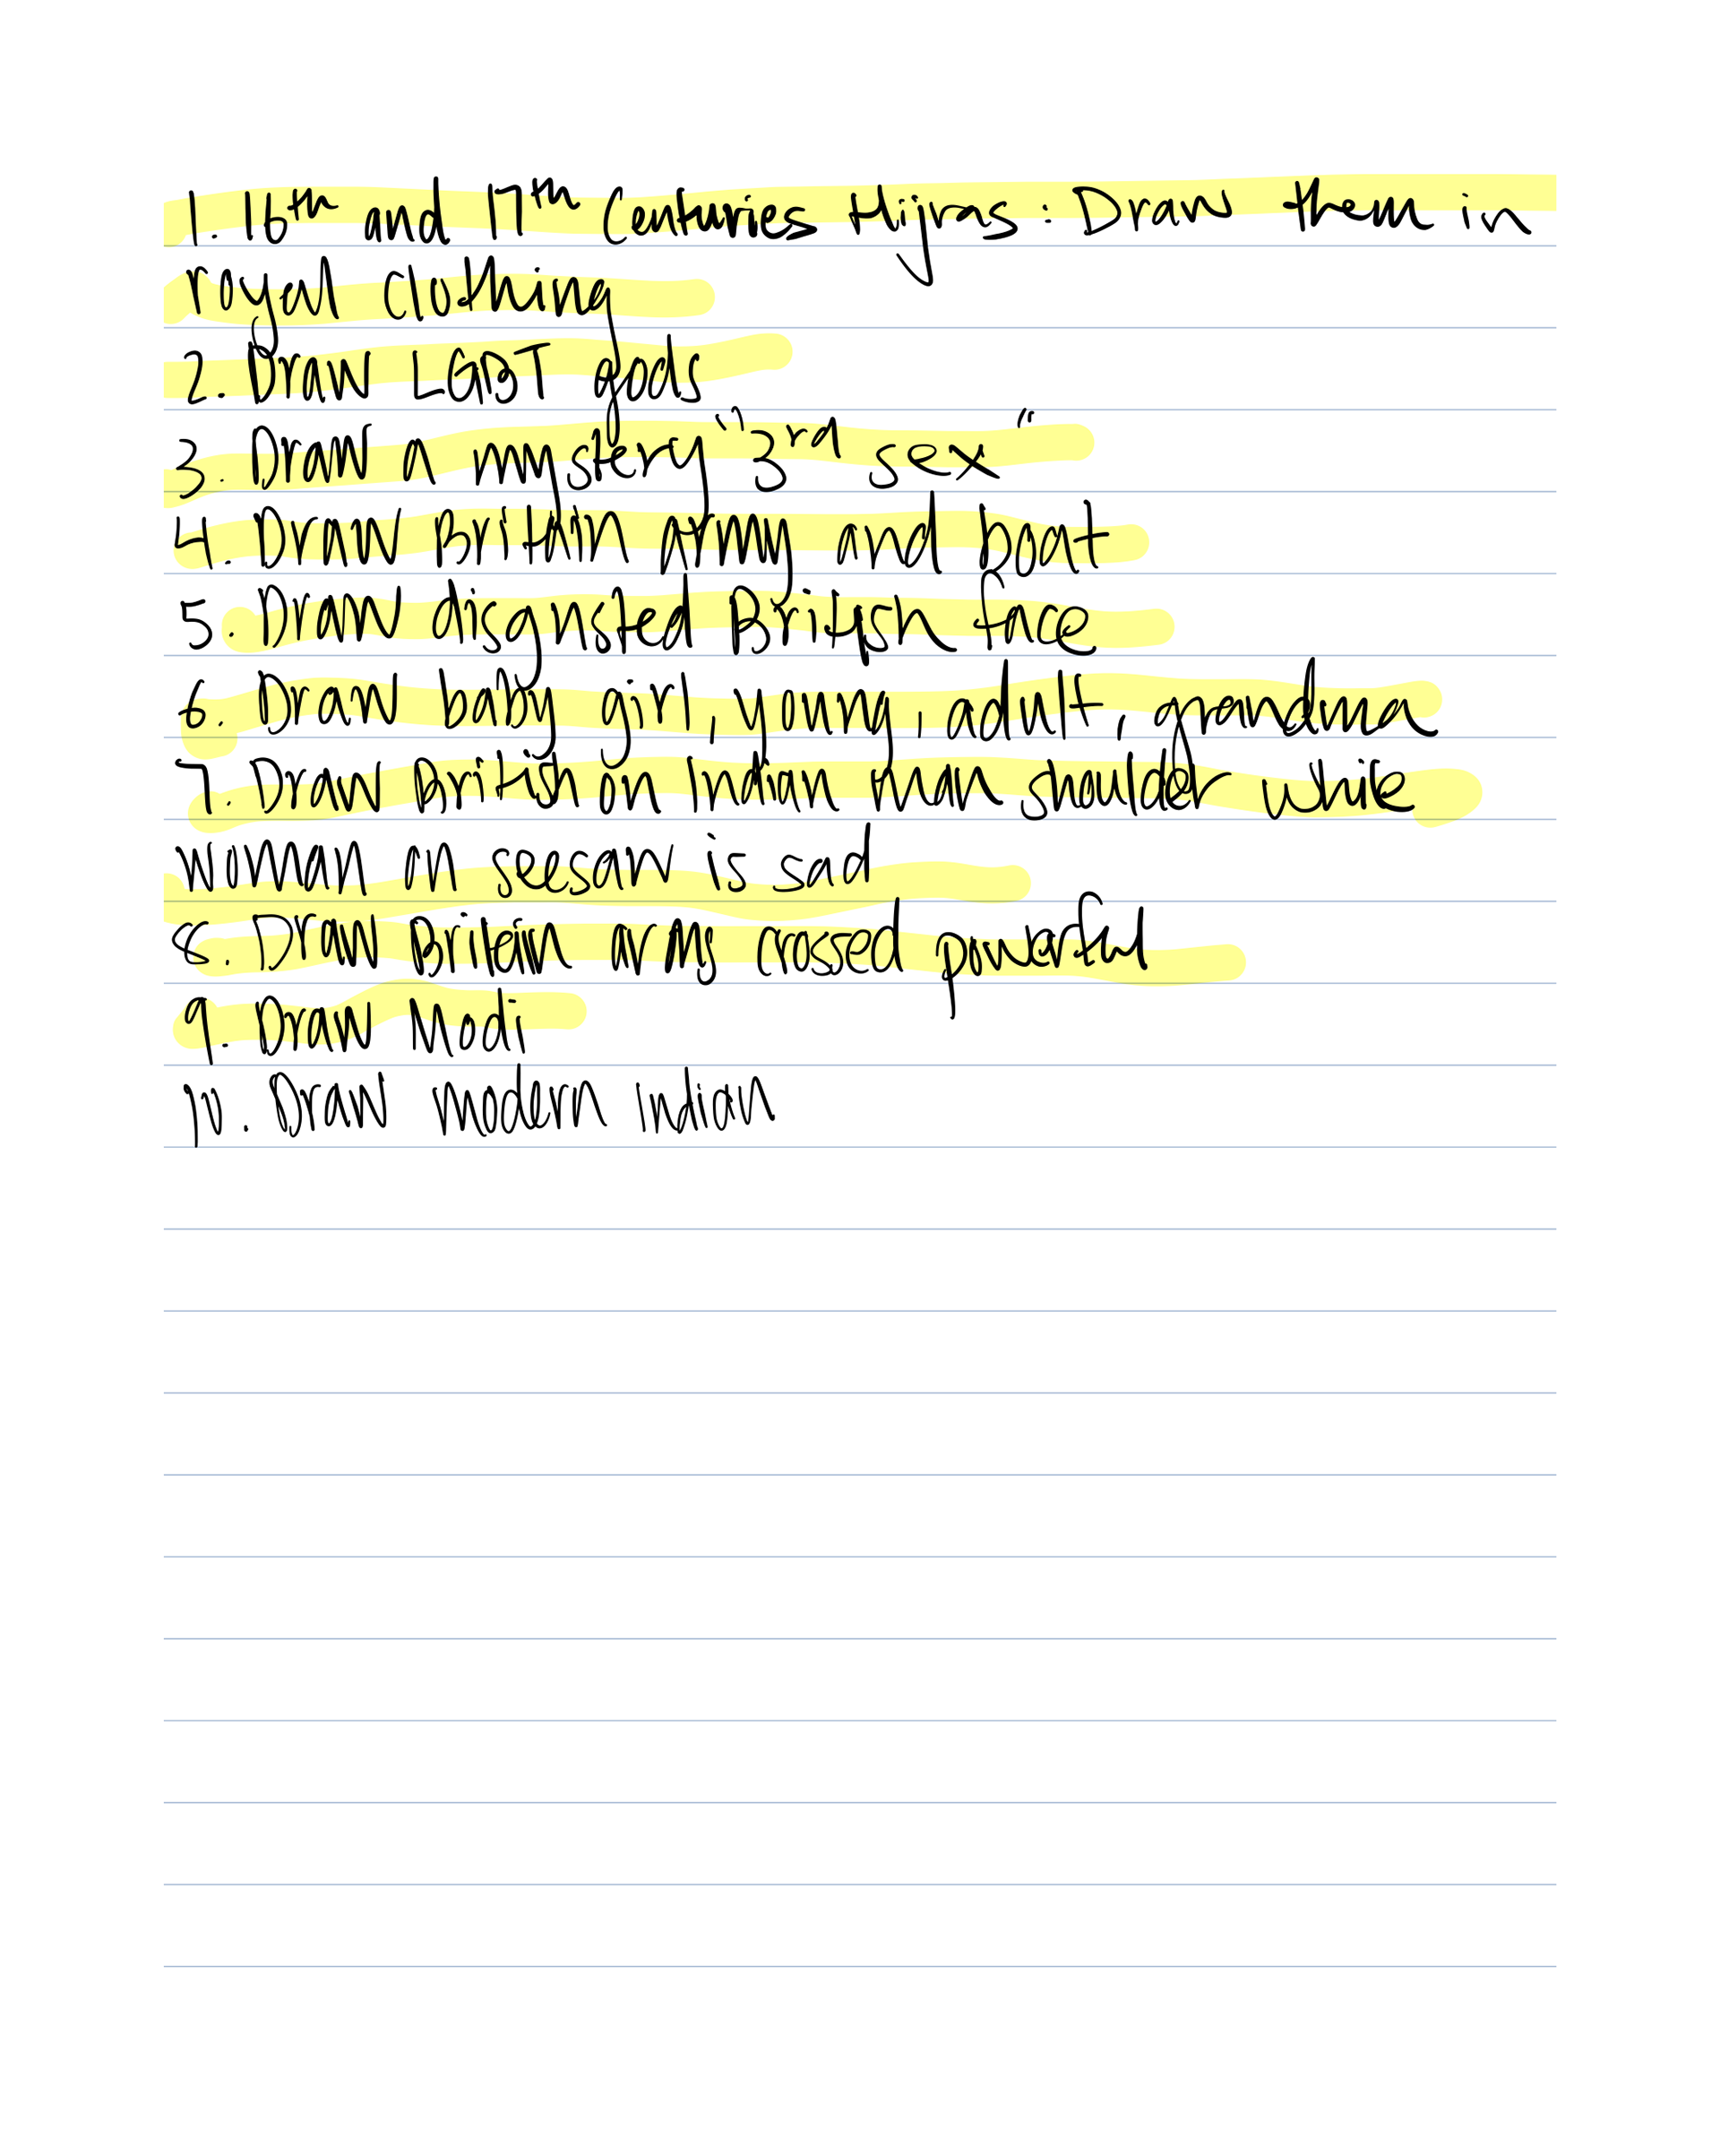 1. 16th and 17th centuries Hijras: Draw them in
royal clothing
2. DRAW LGBT gods
3. DRAW a mystery "3rd sex"
4. Draw British army and boat
5. DRAW disgusted British face
6. Draw baby, girl, young adult, grandma
7. Draw British on Indian man shoulder while
woman on sea is sad
8. Draw British arms crossed powerful
9. DRAW Modi
10. DRAW modern indian